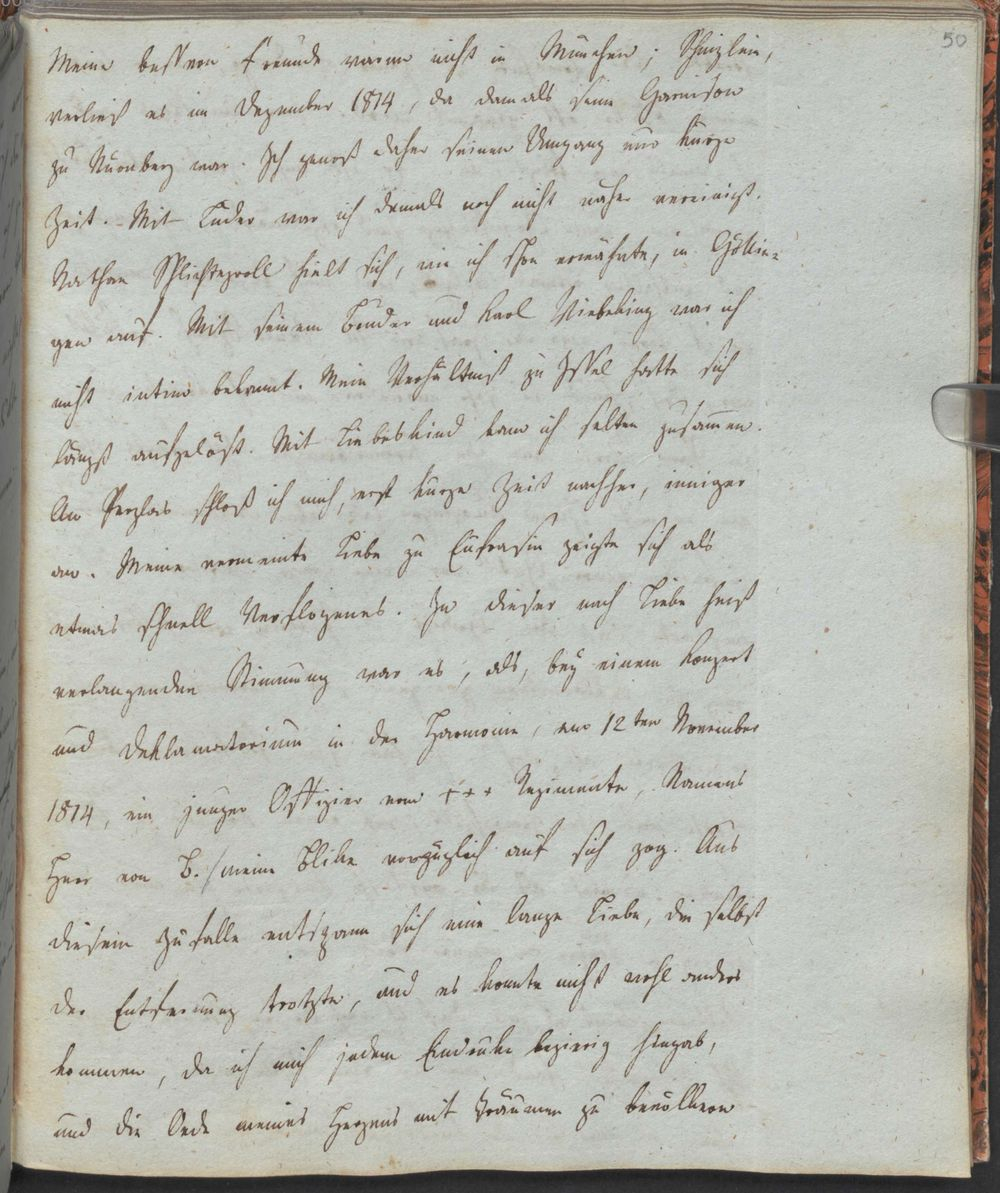 50
Meine bessern Freunde waren nicht in München; Schnizlein,
verließ es im Dezember 1814, da damals seine Garnison
zu Nürnberg war. Ich genoß daher seinen Umgang nur kurze
Zeit. Mit Lüder war ich damals noch nicht näher vereinigt.
Nathan Schlichtegroll hielt sich, wie ich schon erwähnte, in Göttin-
gen auf. Mit seinem Bruder und Karl Wiebeking war ich
nicht intim bekannt. Mein Verhältniß zu Issel hatte sich
längst aufgelöst. Mit Liebeskind kam ich selten zusammen.
An Perglas schloß ich mich, erst kurze Zeit nachher, inniger
an. Meine vermeinte Liebe zu Eufrasie zeigte sich als
etwas schnell Verflogenes. In dieser nach Liebe heiß
verlangenden Stimmung war es, als, bey einem Konzert
und Deklamatorium in der Harmonie, am 12ten November
1814, ein junger Offizier vom +++ Regimente, Namens
Herr von B. meine Blike vorzüglich auf sich zog. Aus
diesem Zufalle entspann sich eine lange Liebe, die selbst
der Entfernung trotzte, und es konnte nicht wohl anders
kommen, da ich mich jedem Eindruke begierig hingab,
und die Oede meines Herzens mit Träumen zu bevölkern